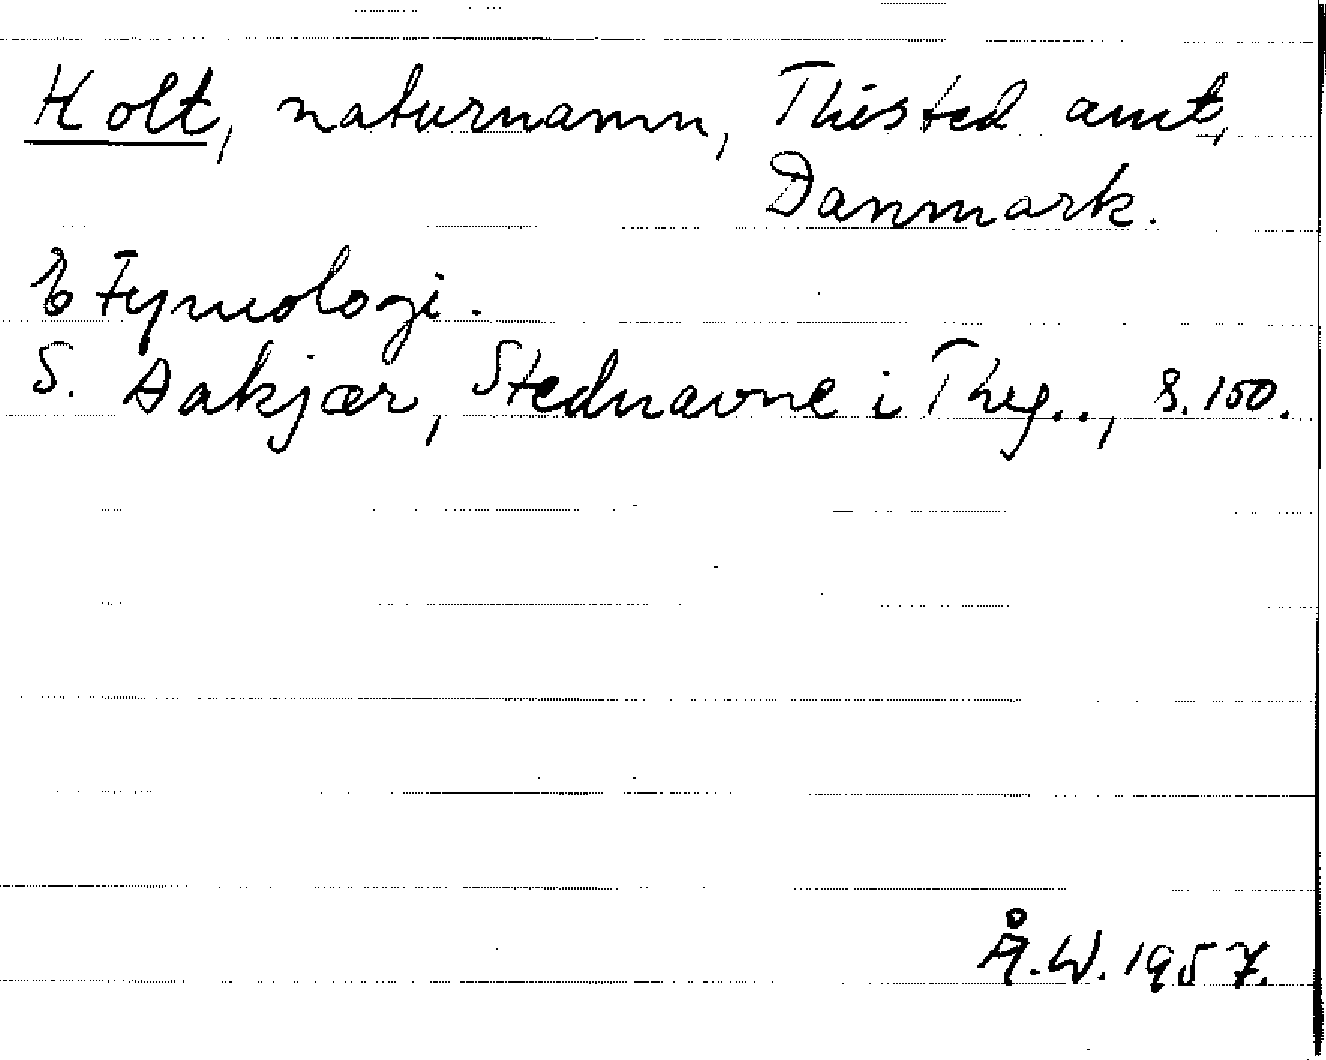 Holt, naturnamn, Thisted amt,
Danmark.
Etymologi.
S. Aakjær, Stednavne i Thy.., s. 150.
Å.W. 1957.